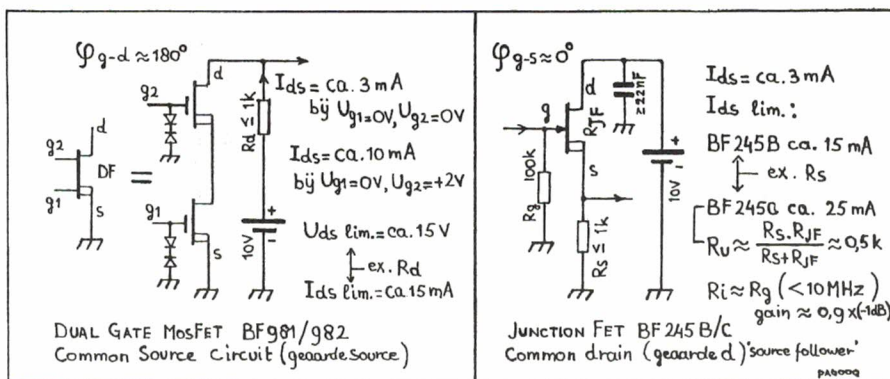 φg-d ≈ 180°
d
g2
g2
d
DF
g1
s
g1
s
Rd ≤ 1k
10V
+
-
Ids = ca. 3 mA
bij Ug1=0V, Ug2=0V
Ids = ca. 10 mA
bij Ug1=0V, Ug2=+2V
Uds lim. = ca. 15 V
ex. Rd
Ids lim. = ca 15 mA
DUAL GATE MOSFET BF981/982
Common Source Circuit (geaarde source)
φg-s ≈ 0°
d
≥22nF
g
RJF
s
Rg 100k
Rs ≤ 1k
10V
+
-
Ids = ca. 3 mA
Ids lim.:
BF245B ca. 15 mA
ex. Rs
BF245C ca. 25 mA
Ru ≈ Rs.RJF / Rs+RJF ≈ 0,5k
Ri ≈ Rg (<10 MHz)
gain ≈ 0,9x (-1dB)
JUNCTION FET BF245B/C
Common drain (geaarde d) 'source follower'
PA0000